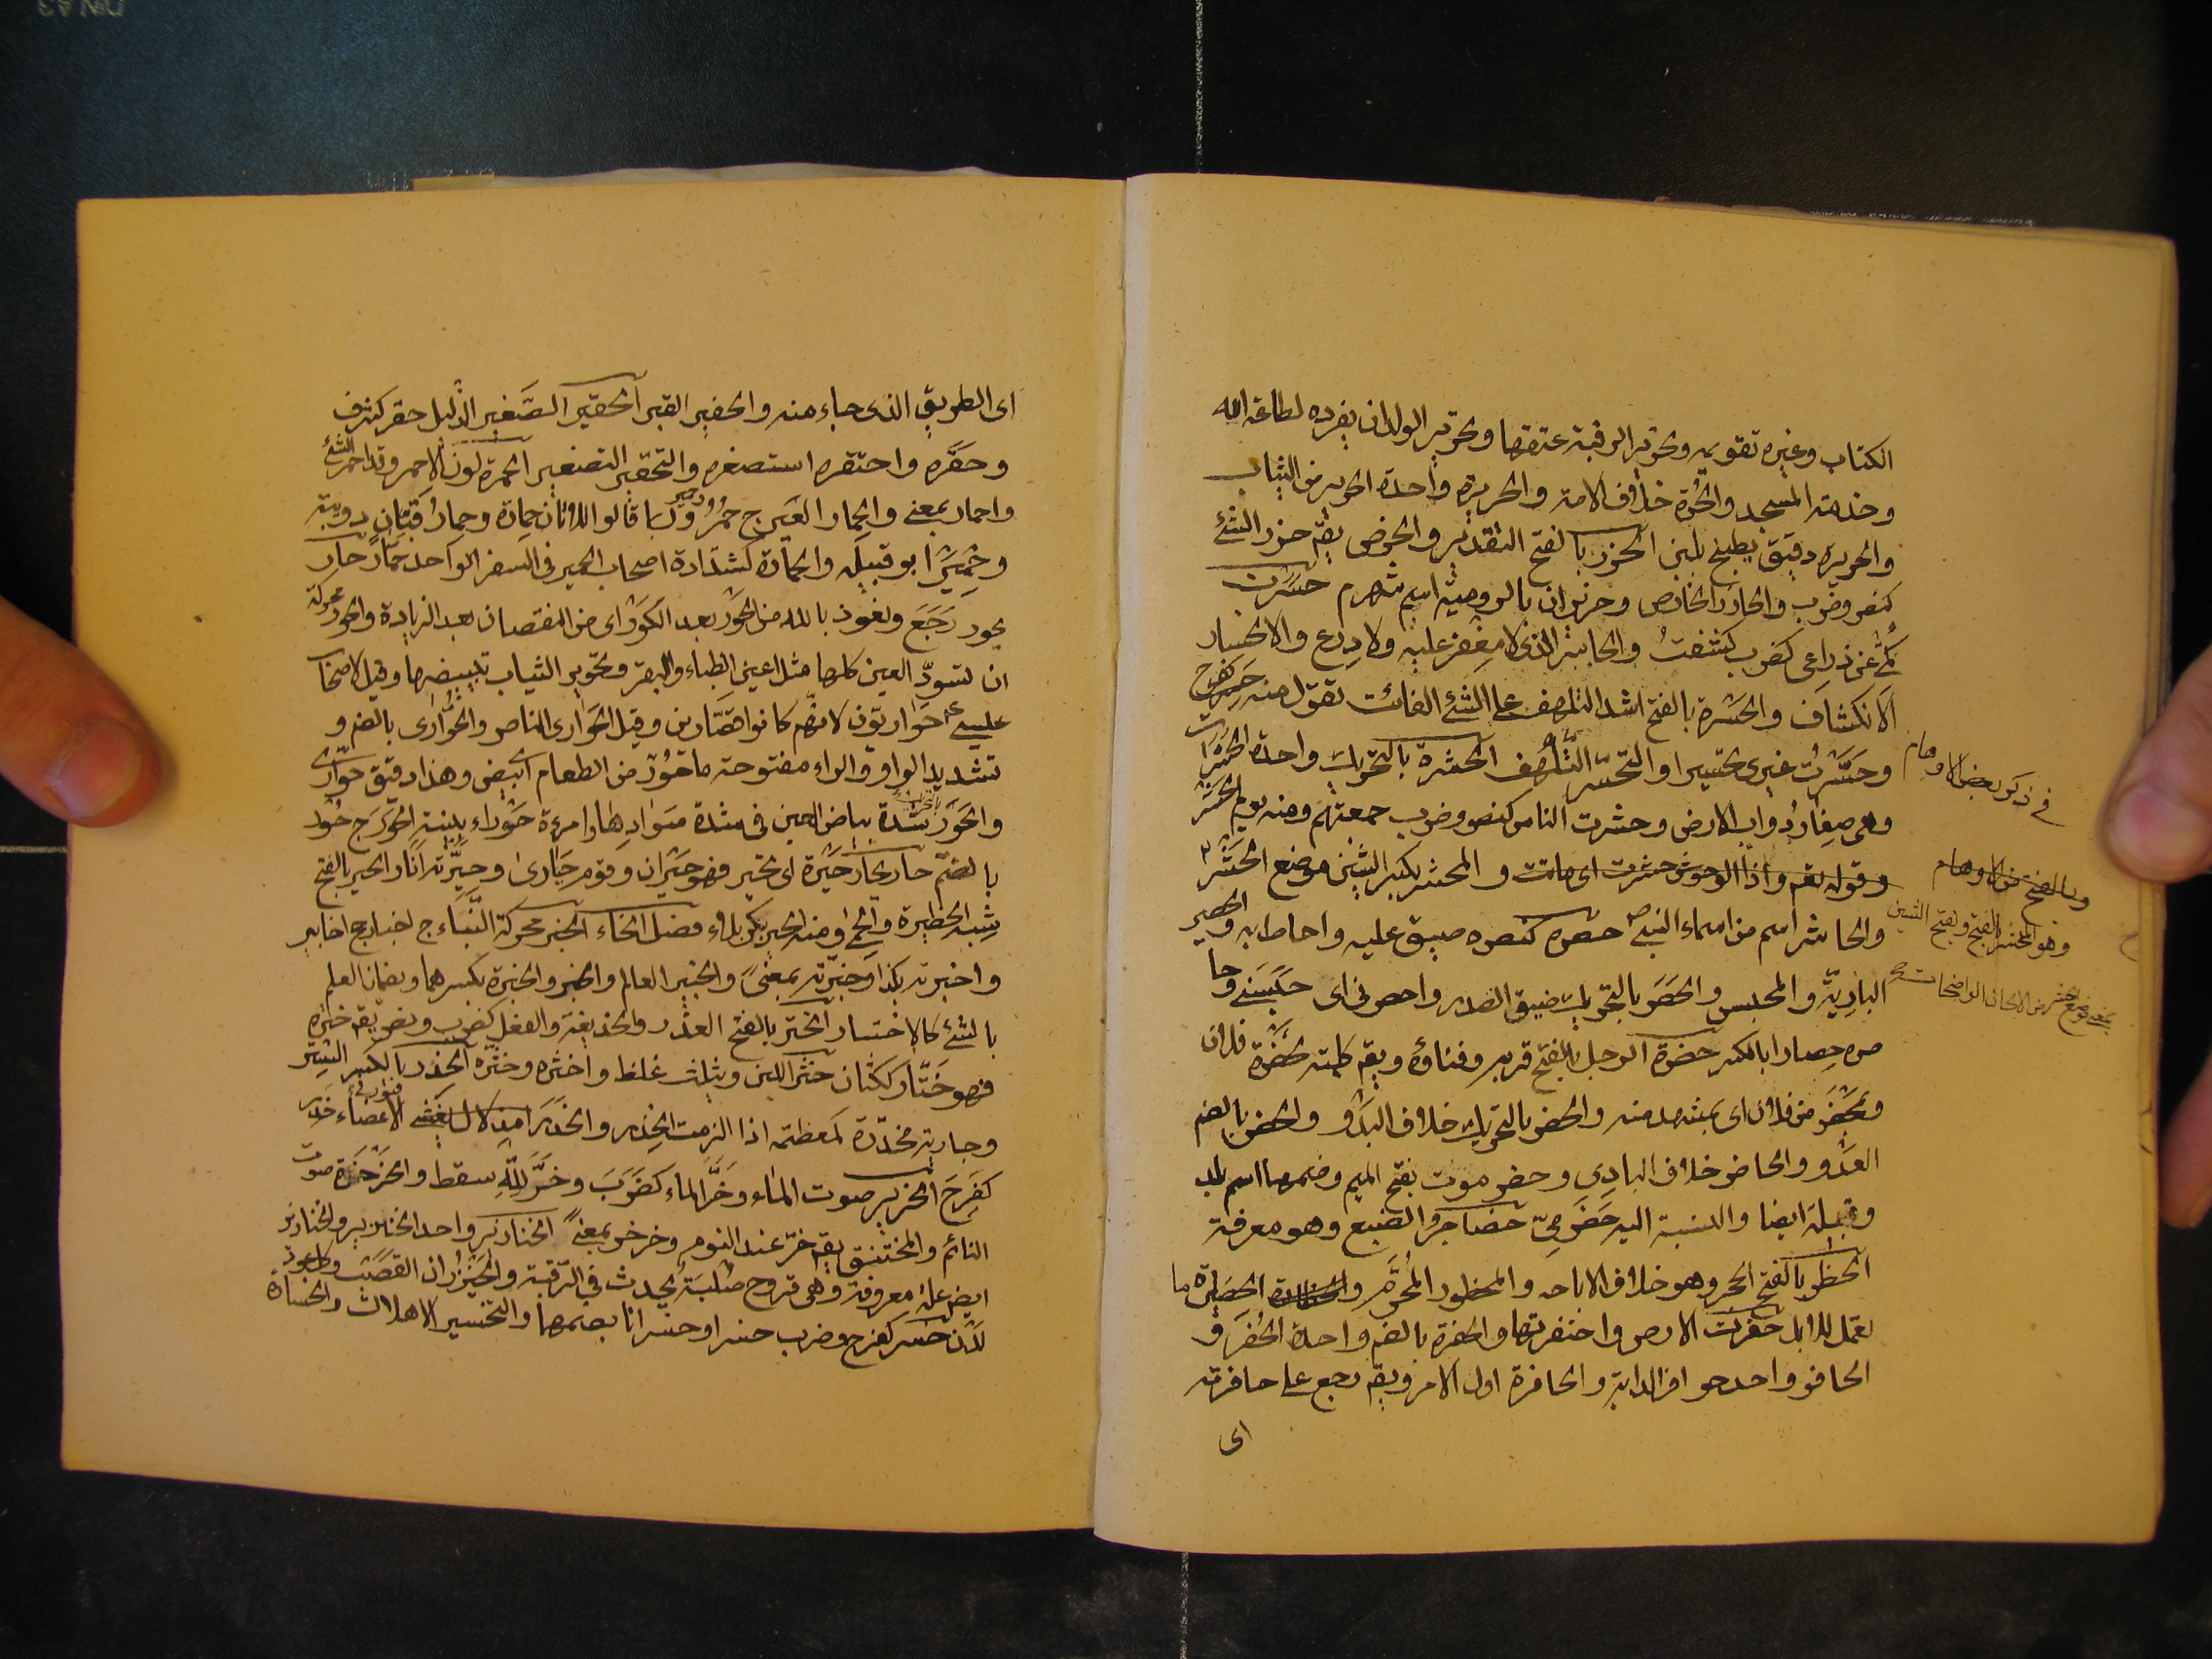 الكتاب وغيره تقويمه وتحرير الرقبة عتقها وتحرير الولد ان يفرده لطاعة الله
وخدمة المسجد والحُرّة خلاف الامة والحريرة واحدة الحرير من الثياب
والحريرة دقيق يطبخ بلبن الحزر بالفتح التقدير والخرص يقم حزر الشئ
كنصر وضرب والحازر الخارص وحزيران بالرومية اسم شهرم حَسَرت
كُمّى عن ذراعى كضرب كشفتُ والحاسر الذى لا مِغفر عليه ولا دِرع والانحسار
الانكشاف والحَسْرة بالفتح اشد التلهف على الشئ الفائت تقول منه حَسِر كفرح
وحَسّرتُ غيرى تحسيرا والتحسّر التّلهّف الحشرة بالتحريك واحدة الحَشَرات
وهى صِغار دُوابّ الارض وحشرت الناس كنصر وضرب جمعتهم ومنه يوم الحشر
وقوله تقم واذا الوحوش حشرت اى ماتت والمحشر بكسر الشين موضع الحَشْر
والحاشر اسم من اسماء النبى ص حصره كنصره ضيق عليه واحاط به والحصير
الباديّة والمحبس والحَصَر بالتحريك ضيق الصدر واحصرنى اى حبسنى وحا
صره حِصارا بالكسر حضرة الرجل بالفتح قربه وفناؤه ويقم كلمته بحَضْرة فلان
وبمحْضَر من فلان اى بمشهد منه والحضر بالتحريك خلاف البَدْو والحُضر بالضم
العَدْو والحاضر خلاف البادى وحضرموت بفتح الميم وضمها اسم بلد
وقبيلة ايضا والنسبة اليه حَضْرمىّ حضاجر الضبع وهو معرفة
الحظر بالفتح الحجر وهو خلاف الاباحه والمحظور المُحرَّم والحَظِيرة ما
تعمل للابل حفرت الارض واحتفرتها والحفرة بالضم واحدة الحُفَر و
الحافر واحد حوافر الدابة والحافرة اول الامر ويقم رجع على حافرته
اى
فى ذكر بعض الاوهام
وبالفتح من الاوهام
وهو المحشر بالفتح وبفتح الشين
اى الطريق الذى جاء منه والحفير القبر الحقير الصَّغير الذّليل حقر كشرف
وحقّره واحتقره استصغره والتحقير التصغير الحمرة لون الاحمر وقد احمر الشئ
واحمار بمعنى والحِمار العَير ج حمُرُ وحمير وربما قالوا للاتان حِمارة وحِمارُ قَبّان دويبة
وحِمْيَر ابو قبيله والحمّارة كشدّادة اصحاب الحمير فى السفر الواحد حمّار حار
يحور رَجَعَ ونعوذ بالله من الحَوْر بعد الكَوْر اى من النقصان بعد الزيادة والحور محركة
ان تسودّ العين كلها مثل اعين الظباء والبقر وتحوير الثياب تبييضها وقيل لاصحاب
عيسى ع حَواريّون لانهم كانوا قصّارين وقيل الحَوارى الناصر والحُوّارى بالضم و
تشديد الواو والراء مفتوحة ما حُوّر من الطعام اى بيض وهذا دقيق حوّارى
والحَوَر بالتحريك شدة بياض العين فى شدة سَوادِها وامرءة حَوْراء بيّنة الحَوَر ج حُور
بالضمّ حار يحار حَيْرة اى تحيّر فهو حَيْران وقوم حَيارى وحيَّرته انا والحير بالفتح
شِبه الحظيرة والحِمى ومنه الحير بكربلاء فصل الخاء الخبر محركة النَّبَاء ج اخبار جج اخابير
واخبرته بكذا وخبّرته بمعنىً والخبير العالم والخبر والخبرة بكسرهما وبضمان العلم
بالشئ كالاختبار الختر بالفتح الغدر والخديعة والفعل كضرب ونصر يقم ختره
فهو خَتّار ككتّان خثر اللبن ويثلث غلظ واخثره وخثّره الخدر بالكسر السّتر
وجارية مخدّرة كمعظمة اذا الزمت الخِدر والخَدَر امذلال يغشى الاعضاء خدر
كفَرِحَ الخرير صوت الماء وخَرَّ الماء كضَرَبَ وخَرَّ لِلّهِ سقط والخَرْخَرَة صوت
النائم والمختنق يقم خرّ عند النوم وخرخر بمعنىً الخنازير واحد الخنازير والخنازير
ايض علّة معروفة وهى قروح صُلبَة تحدث فى الرّقبة والخَيْزُران القصب وكل عود
لَدْن خسر كفرح وضرب خسرا وخسرانا بضمهما والتخسير الاهلاك والخسارة